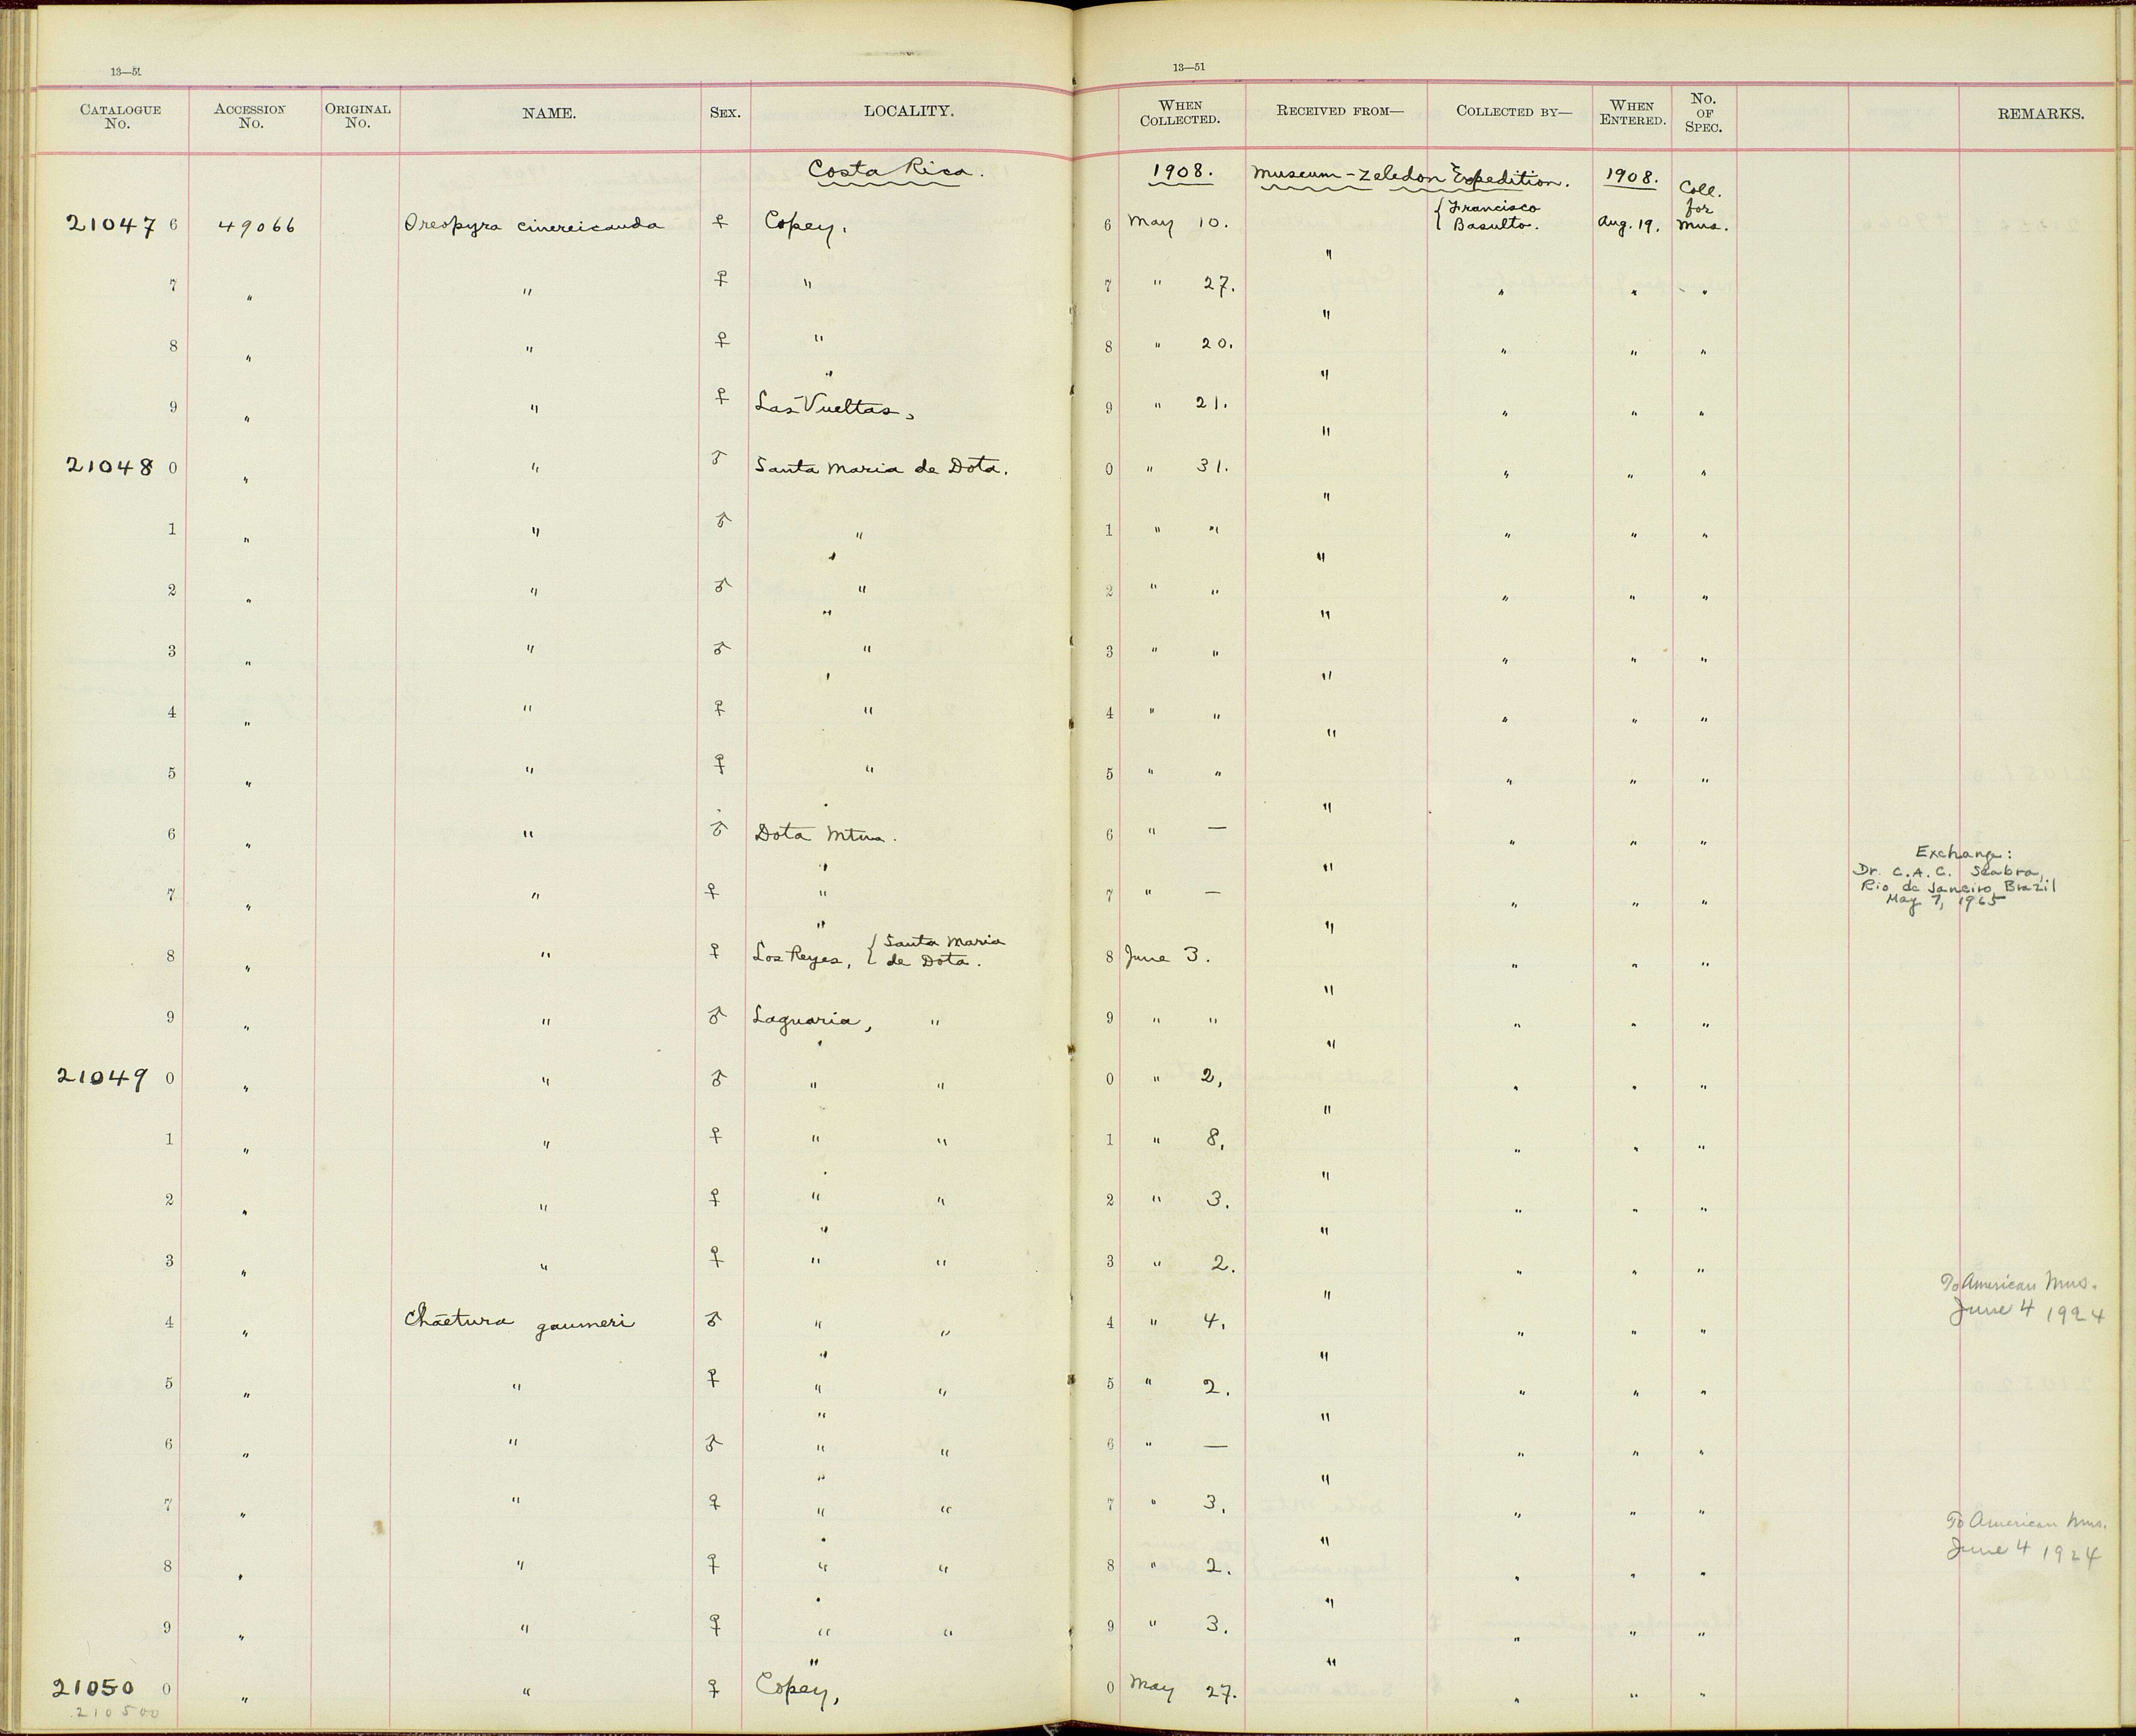 13—51
CATALOGUE No. ACCESSION No. ORIGINAL No. NAME. SEX. LOCALITY.
Costa Rica.
21047 6 49066 Oreopyra cinereicauda ♀ Copey,
7 " " ♀ "
8 " " ♀ "
9 " " ♀ Las Vueltas,
21048 0 " " ♂ Santa Maria de Dota.
1 " " ♂ "
2 " " ♂ "
3 " " ♂ "
4 " " ♀ "
5 " " ♀ "
6 " " ♂ Dota Mtns.
7 " " ♀ "
8 " " ♀ Los Reyes, { Santa Maria
de Dota.
9 " " ♂ Laguaria, "
21049 0 " " ♂ " "
1 " " ♀ " "
2 " " ♀ " "
3 " " ♀ " "
4 " Chaetura gaumeri ♂ " "
5 " " ♀ " "
6 " " ♂ " "
7 " " ♀ " "
8 " " ♀ " "
9 " " ♀ " "
21050 0 " " ♀ Copey,
210500
13—51
WHEN COLLECTED. RECEIVED FROM— COLLECTED BY— WHEN ENTERED. No. OF SPEC. REMARKS.
1908. Museum-Zeledon Expedition. 1908. Coll.
6 May 10. " { Francisco Basulto. Aug. 19. for Mus.
7 " 27. " " " "
8 " 20. " " " "
9 " 21. " " " "
0 " 31. " " " "
1 " " " " " "
2 " " " " " "
3 " " " " " "
4 " " " " " "
5 " " " " " "
6 " — " " " "
Exchange:
Dr. C.A.C. Seabra,
Rio de Janeiro, Brazil
May 7, 1965
7 " — " " " "
8 June 3. " " " "
9 " " " " " "
0 " 2, " " " "
1 " 8, " " " "
2 " 3. " " " "
3 " 2. " " " "
To American Mus.
June 4 1924
4 " 4, " " " "
5 " 2. " " " "
6 " — " " " "
7 " 3, " " " "
To American Mus.
June 4 1924
8 " 2. " " " "
9 " 3. " " " "
0 May 27. " " "